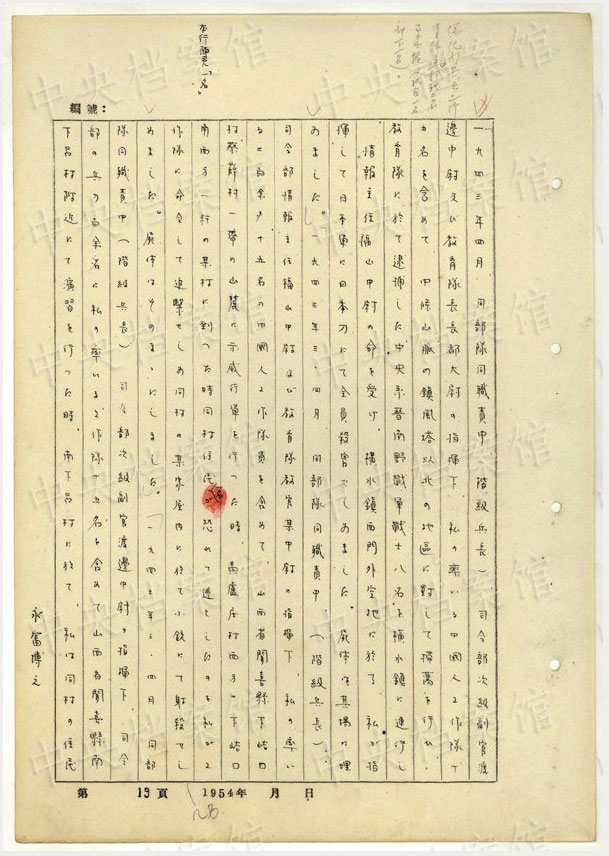 編號：
一九四三年四月、同部隊同職責中(階級兵長)司令部次級副官渡
邊中尉及び教育隊長長部大尉の指揮下、私の率いる中國人工作隊十
五名を含めて、中條山脈の鎮風塔以北の地區に對して掃蕩を行ひ、
教育隊に於て逮捕した中央系晉南野戰軍戰士八名を橫水鎮に連行し
情報主任福山中尉の命を受け、橫水鎮西門外空地に於て、私が指
揮して日本軍に日本刀にて全員殺害せしめました。屍体は其場に埋
めました。」一九四三年三・四月、同部隊同職責中、(階級兵長)、
司令部情報主任福山中尉及び教育隊教官某中尉の指揮下、私の率い
る 十五名の中國人工作隊員を含めて、山西省聞喜縣下峪口
村蔡薛村一帶の山麓に示威行軍を行った時、高盧庄村西方(下峪口
南西方)一行の某村に到った時同村住民が恐れて逃走したのを私が工
作隊に命令して追擊せしめ同村の某家屋内に於て小銃にて射殺せし
めました。屍体はそのまゝにしました。「一九四三年三・四月、同部
隊同職責中(階級兵長)司令部次級副官渡邊中尉の指揮下、司令
部の兵力百余名に私の率いる工作隊十五名を含めて山西省聞喜縣南
下呂村附近にて演習を行った時、南下呂村に於て、私は同村の住民
永富博之
第 13頁 1954年 月 日